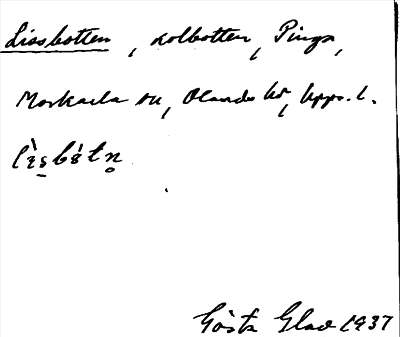 Lissbotten, kolbotten, Pinga,
Morkarla sn, Olands hd, Upps. l.
Gösta Glad 1937